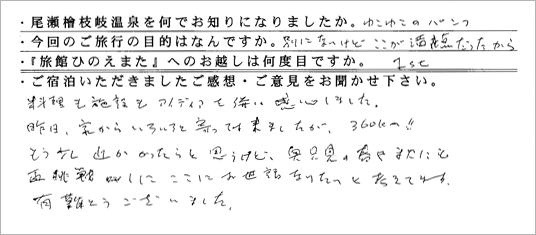 ・尾瀬檜枝岐温泉を何でお知りになりましたか。ゆこゆこのパンフ
・今回のご旅行の目的はなんですか。別にないけどここが満点だったから
・『旅館ひのえまた』へのお越しは何度目ですか。1st
・ご宿泊いただきましたご感想・ご意見をお聞かせ下さい。
料理も施設もアイディアも 感心しました。
昨日、家からいろいろと寄って来ましたが、360km!!
もう少し近かったらと思うけど、奥只見の
再挑戦 ここにお世話になりたいと考えてます。
有難とうございました。